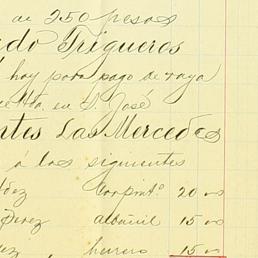 de 250 pesos
Trigueros
hoy para pago de raya
Hda. en S. José
Las Mercedes
a los siguientes
Carpinto. 20 00
Perez albañil 15 00
herrero 15 00